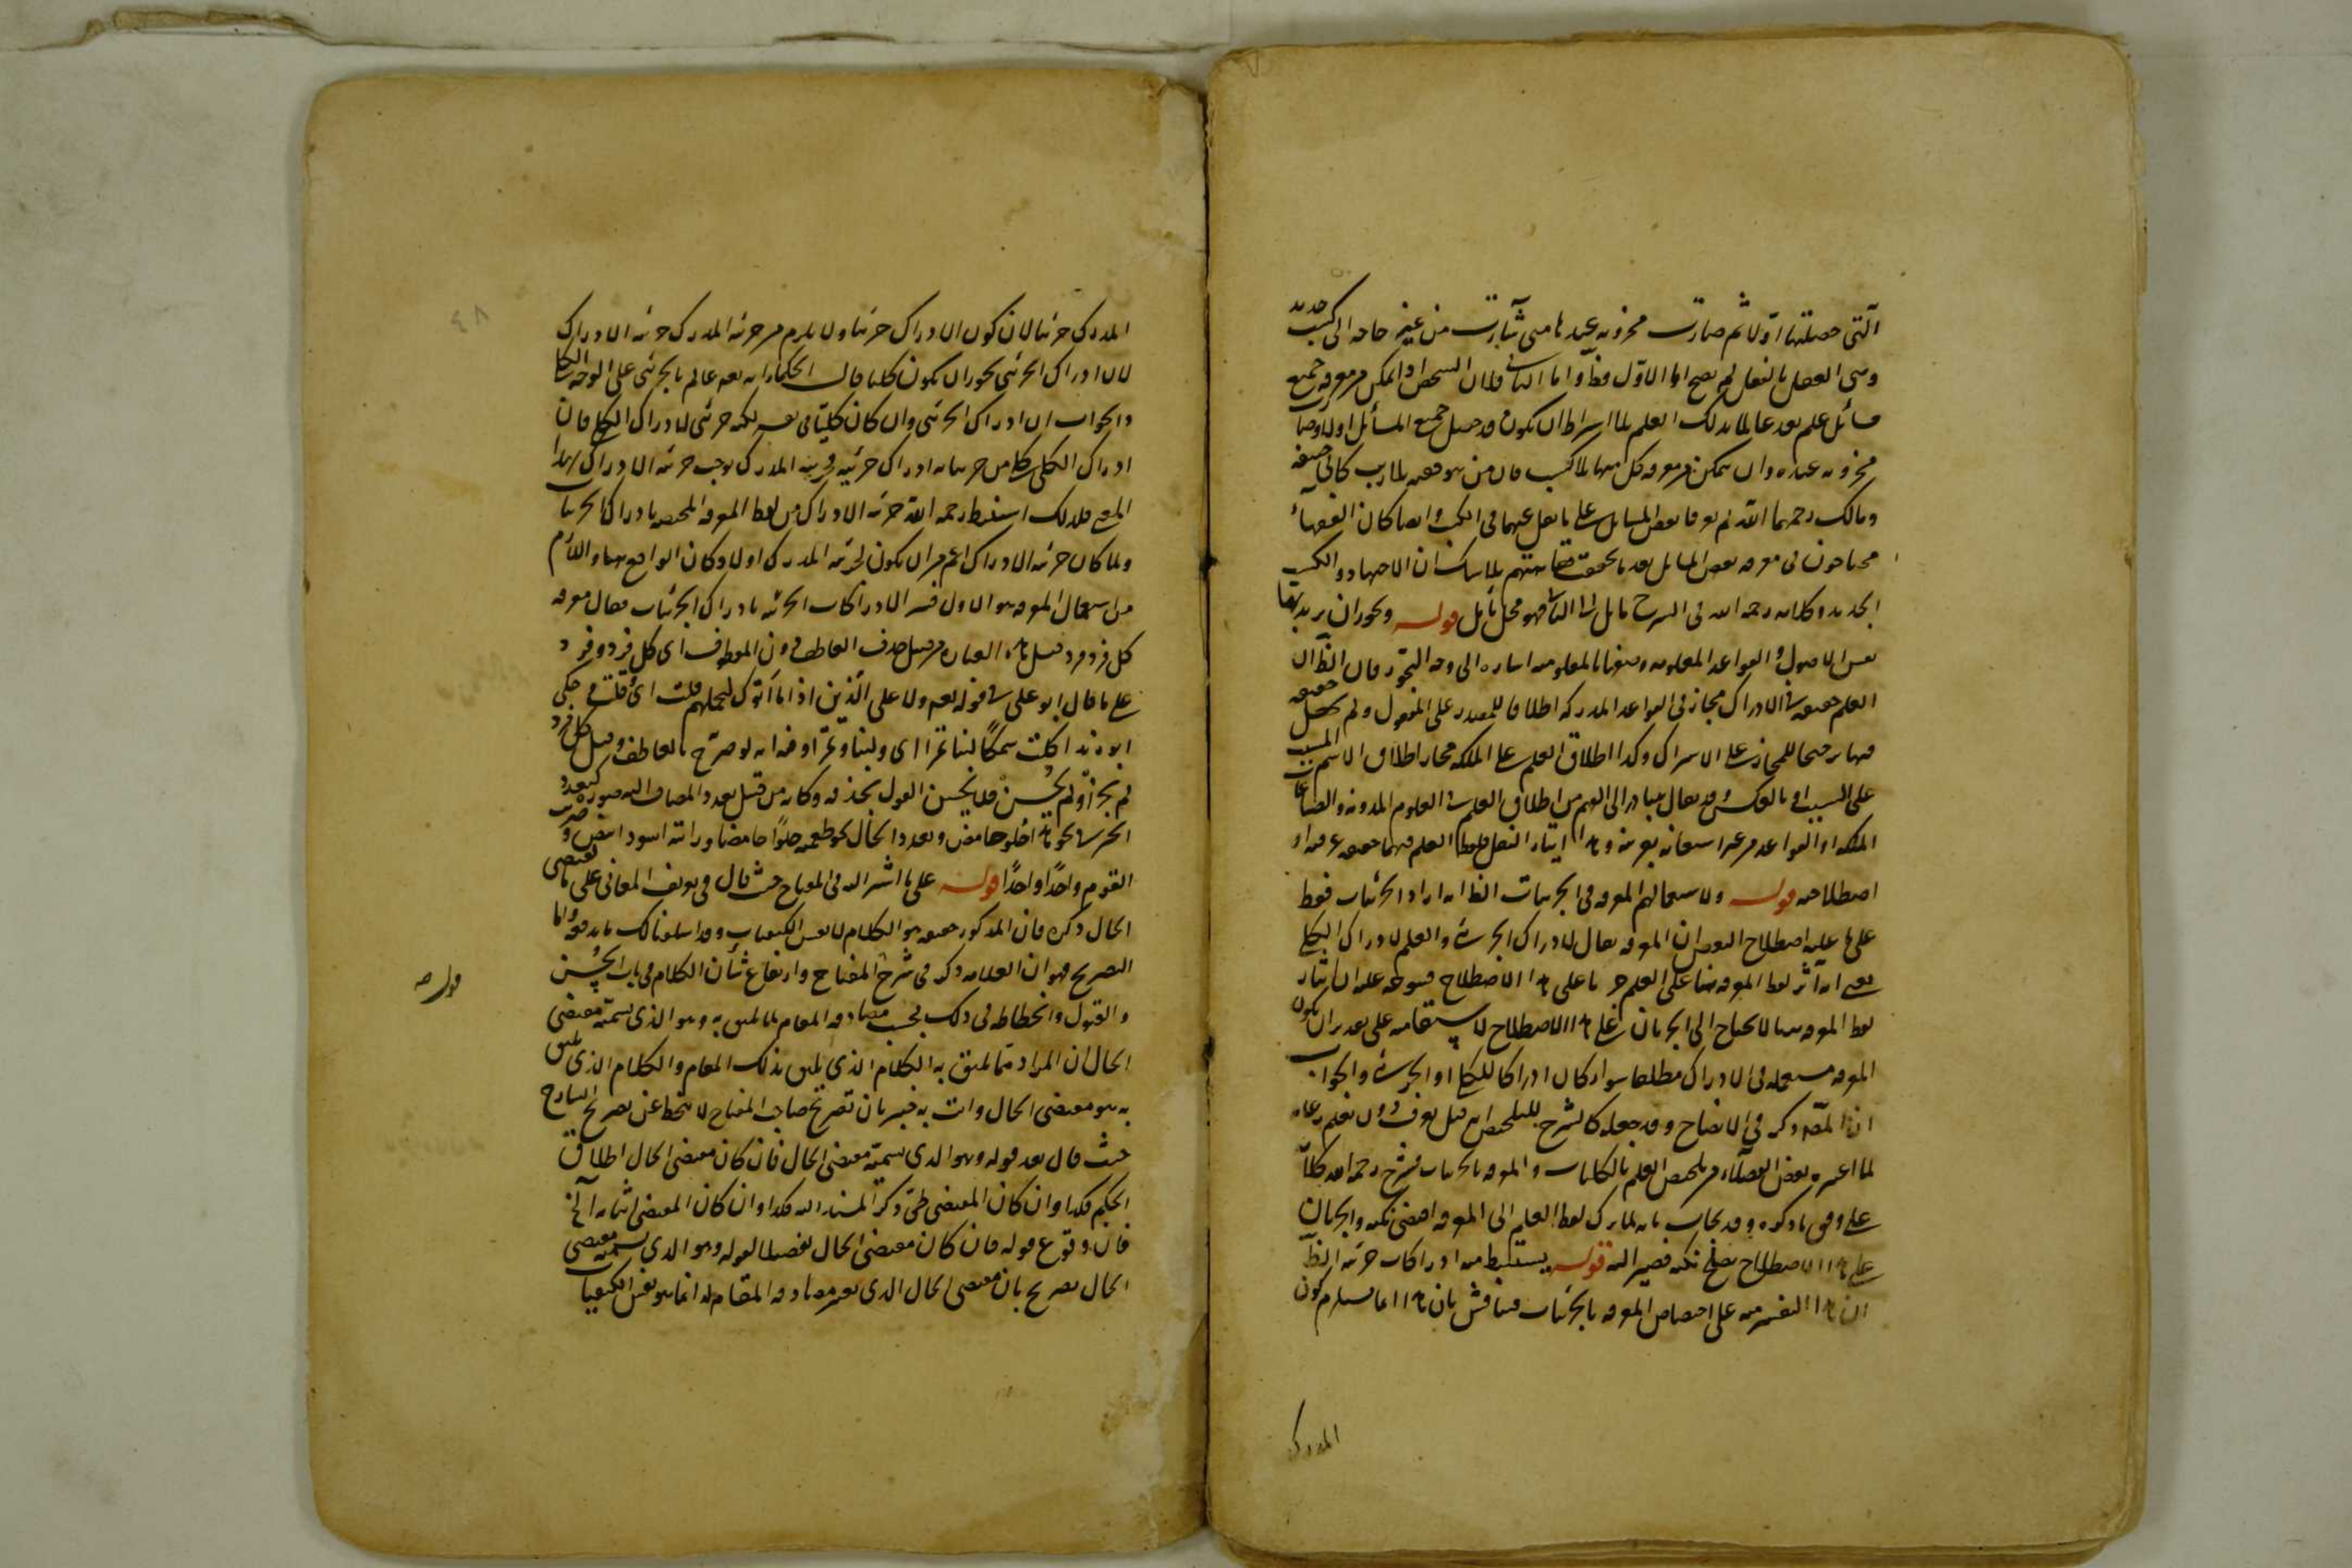 التى حصلتها اولا ثم صارت مخزونه عندها متى شآءت من غير حاجه الى كسب جديد
وهى العقل بالفعل لم يصح اما الاول فظ واما الثانى فلان الشخص اذا تمكن من معرفه جميع
مسائل علم يعد عالما بذلك العلم بلا اشتراط ان يكون قد حصل جميع المسائل اولا وصارت
مخزونه عنده وان تمكن من معرفه كل منها بلا كسب فان من هو فقيه بلا ريب كابى حنيفه
ومالك رحمهما الله لم يعرفا بعض المسائل على ما نقل عنهما فى الكتب وايضا كان الفقهاء
محتاجون فى معرفه بعض المسائل بعد تحقق فقاهتهم بلا شك ان الاجتهاد والكسب
الجديد وكلامه رحمه الله فى الشرح مائل الى الثانى فهو محل تأمل قوله ويجوز ان يريد بها
نفس الاصول والقواعد المعلومه وصفها بالمعلوميه اشاره الى وجه التجوز فان الظ ان
العلم حقيقه فى الادراك مجاز فى القواعد المدركه اطلاقا للمصدر على المفعول ولم يجعل حقيقه
فيها ترجيحا للمجاز على الاشتراك وكذا اطلاق العلم على الملكه مجاز اطلاق لاسم المسبب
على السبب او بالعكس وقد يقال يتبادر الى الفهم من اطلاق العلم فى العلوم المدونه والصناعات
الملكه او القواعد من غير استعانه بقرينه وهذا ايثار النقل فلفظ العلم فيهما حقيقه عرفيه او
اصطلاحيه قوله ولاستعمالهم المعرفه فى الجزئيات الظ انه اراد الجزئيات فقط
على ما عليه اصطلاح البعض ان المعرفه يقال لادراك الجزئى والعلم لادراك الكلى
يعنى انه آثر لفظ المعرفه هنا على العلم جريا على هذا الاصطلاح فيتوجه عليه ان ايثار
لفظ المعرفه هنا لا يحتاج الى الجريان على هذا الاصطلاح لاستقامته على تقدير ان يكون
المعرفه مستعمله فى الادراك مطلقا سواء كان ادراكا للكلى او الجزئى والجواب
ان المص ذكر فى الايضاح وقد جعله كالشرح للتلخيص انه قيل يعرف دون يعلم رعايه
لما اعتبره بعض الفضلاء من تخصيص العلم بالكليات والمعرفه بالجزئيات فشرح رحمه الله كلامه
على وفق ما ذكره وقد يجاب بانه لما ترك لفظ العلم الى المعرفه اقتضى نكته والجريان
على هذا الاصطلاح يصلح نكته فصير اليه قوله يستنبط منه ادراكات جزئيه الظ
ان هذا التفسير مبنى على اختصاص المعرفه بالجزئيات فيناقش بان هذا انما يستلزم كون
المدرك
المدرك جزئيا لا ان يكون الادراك جزئيا ولا يلزم من جزئيه المدرك جزئيه الادراك
لان ادراك الجزئى يجوز ان يكون كليا قالت الحكماء انه تعه عالم بالجزئى على الوجه الكلى
والجواب ان ادراك الجزئى وان كان كليا فى نفسه لكنه جزئى لادراك الكلى فان
ادراك الكلى كل من جزئياته ادراك جزئيه فجزئيه المدرك يوجب جزئيه الادراك بهذا
المعنى فلذلك استنبط رحمه الله جزئيه الادراك من لفظ المعرفه المختصه بادراك الجزئيات
ولما كان جزئيه الادراك اعم من ان يكون لجزئيه المدرك او لا وكان الواقع هنا واللازم
من استعمال المعرفه هو الاول فسر الادراكات الجزئيه بادراك الجزئيات فقال معرفه
كل فرد فرد قيل هذه العباره من قبيل حذف العاطف دون المعطوف اى كل فرد وفرد
على ما قال ابو على فى قوله تعه ولا على الذين اذا ما اتوك لتحملهم قلت اى وقلت وحكى
ابو زيد اكلت سمكا لبنا تمرا اى ولبنا وتمرا وفيه انه لو صرح بالعاطف وقيل كل فرد وفرد
لم يجز او لم يحسن فلا يحسن القول بحذفه وكانه من قبيل تعدد المضاف اليه صوره كتعدد
الخبر فى نحو هذا حلو حامض وتعدد الحال نحو طعمته حلوا حامضا ورايته اسود ابيض وضرب
القوم واحدا واحدا قوله على ما اشير اليه فى المفتاح حيث قال فى تعريف المعانى على ما يقتضى
الحال ذكره فان المذكور حقيقه هو الكلام لا نفس الكيفيات وقد اسلفنا لك ما يدفعه واما
التصريح فهو ان العلامه ذكر فى شرح المفتاح وارتفاع شأن الكلام فى باب الحسن
والقبول وانحطاطه فى ذلك بحسب مصادفه المقام لما يليق به وهو الذى نسميه مقتضى
الحال ان المراد مما يليق به الكلام الذى يليق بذلك المقام والكلام الذى يليق
به هو مقتضى الحال وانت به خبير بان تصريح صاحب المفتاح لا ينحط عن تصريح الشارح
حيث قال بعد قوله وهو الذى نسميه مقتضى الحال فان كان مقتضى الحال اطلاق
الحكم فكذا وان كان المقتضى طى ذكر المسند اليه فكذا وان كان المقتضى اثباته الخ
فان وقوع قوله فان كان مقتضى الحال تفصيلا لقوله وهو الذى نسميه مقتضى
الحال تصريح بان مقتضى الحال الذى يعتبر مصادفه المقام له انما هو نفس الكيفيات
قوله